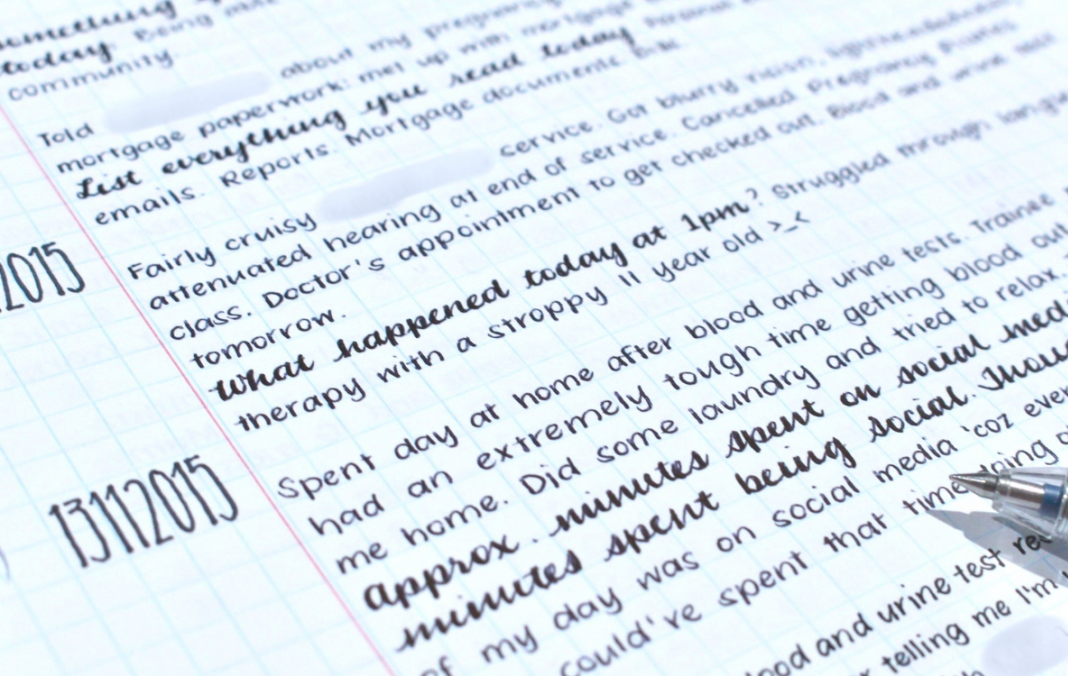 something
today. Being
community.
Told about my pregnancy
mortgage paperwork: met up with mortgage
List everything you read today
emails. Reports. Mortgage documents
Fairly cruisy service. Got blurry vision, lightheadedness,
attenuated hearing at end of service. Cancelled Pregnancy Pilates
class. Doctor's appointment to get checked out. Blood and urine test
tomorrow.
What happened today at 1pm? Struggled through
therapy with a stroppy 11 year old >_<
2015
Spent day at home after blood and urine tests. Trainee
had an extremely tough time getting blood out
me home. Did some laundry and tried to relax.
approx. minutes spent on social
minutes spent being social.
13112015
of my day was on social media 'coz
could've spent that time doing
and urine test
telling me I'm